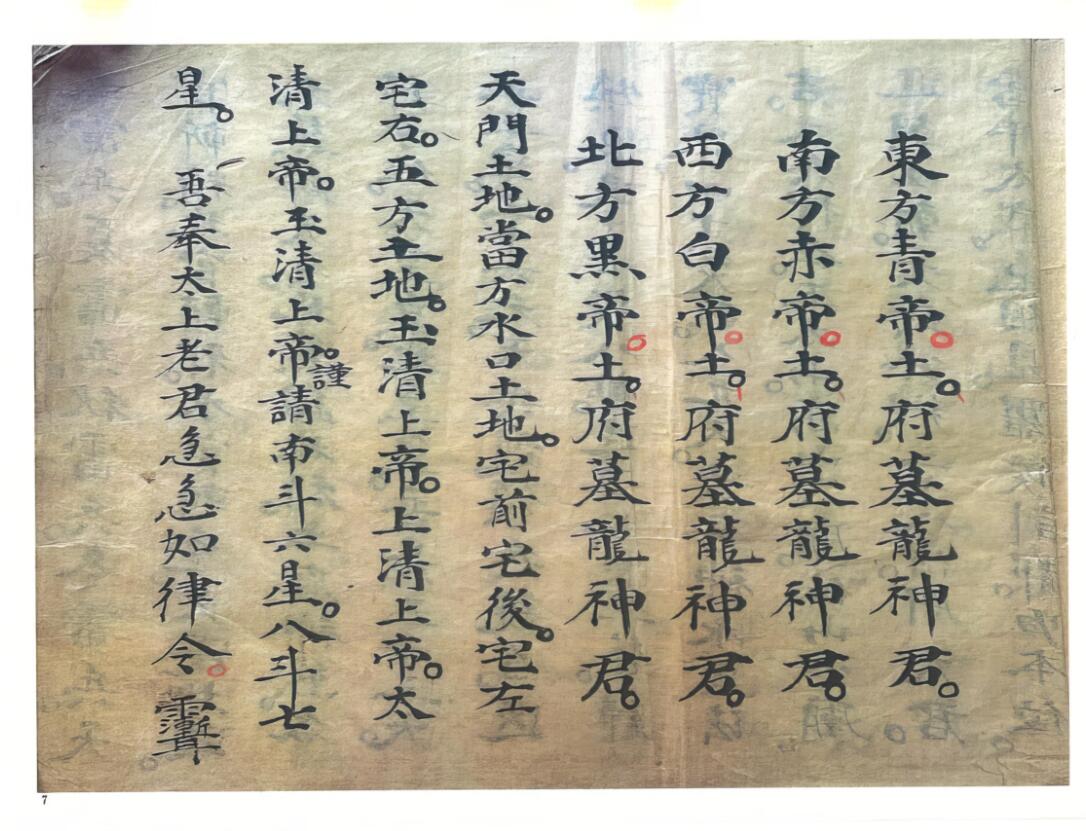 東方青帝。土。府墓龍神君。
南方赤帝。土。府墓龍神君。
西方白帝。土。府墓龍神君。
北方黑帝。土。府墓龍神君。
天門土地。當方水口土地。宅前宅後。宅左
宅右。五方土地。玉清上帝。上清上帝。太
清上帝。玉清上帝。謹請南斗六星。八斗七
星。 吾奉太上老君急急如律令。
7